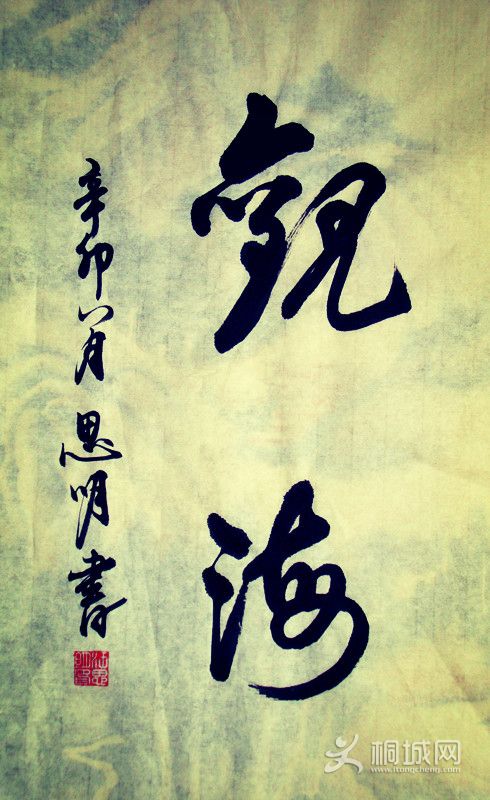 觀海
辛卯八月思明書
桐城网
www.itongcheng.com